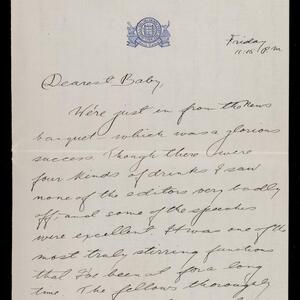 Friday
11:15 P.M.
Dearest Baby,
We're just in from the News
banquet which was a glorious
success. Though there were
four kinds of drinks I saw
none of the editors very badly
off and some of the speeches
were excellent. It was one of the
most truly stirring functions
that I've been at for a long
time. The fellows thoroughly